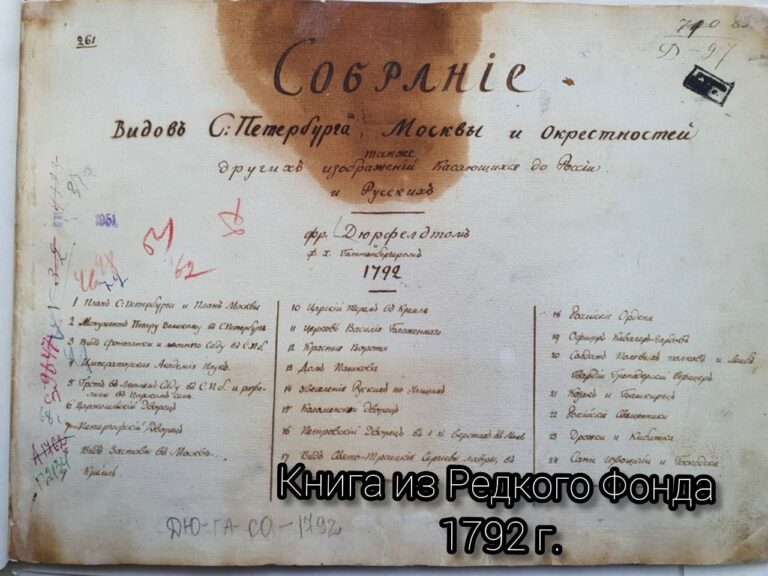 261
Д-97
Собраніе
Видовъ С: Петербурга, Москвы и окрестностей
также
другихъ изображеній касающихся до Россіи
и Русскихъ
фр. Дюрфелдтомъ
ф. х.
1792
1951
62
1 Планъ С: Петербурга и Планъ Москвы
2 Монументъ Петру Великому въ С Петербургѣ
3 Видъ фонтанки и лѣтняго Саду въ С.П.б
4 Императорская Академія Наукъ
5 Гротъ въ Лѣтнемъ Саду въ С.П.б. и
въ Царскомъ селѣ
6 Царскосельскій Дворецъ
7 Дворецъ
Видъ Заставы въ Москвѣ
9 Кремль
10 Царскій Теремъ въ Кремлѣ
11 церковь Василія Блаженнаго
12 Красныя Ворота
13 Домъ Пашкова
14 Увеселенія Рускихъ по Улицамъ
15 Коломенской Дворецъ
16 Петровскій Дворецъ въ 4 х верстахъ
17 Видъ Свято-Троицкія Сергіевы лавры, въ
18 Россійскіе Ордена
19 Офицеръ Кавалер-гардовъ
20 Солдатъ Полевыхъ полковъ и Лейбъ
Гвардіи Гренадерскій Офицеръ
21 Козакъ и Башкирецъ
22 Россійскіе Священники
23 Дрожки и Кибитка
24 Сани извощичьи и Господскіе
ДЮ-ГА-СО-1792
Книга из Редкого Фонда
1792 г.